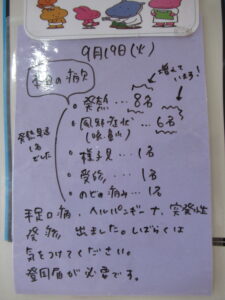 9月19日(火)
本日の病欠
増えて
います!
・発熱…8名
・風邪症状…6名
(咳、鼻水)
発熱早退
1名
でした
・様子見…1名
・受診…1名
・のどの痛み…1名
手足口病、ヘルパンギーナ、突発性
発疹 出ました。しばらくは
気をつけてください。
登園届が必要です。